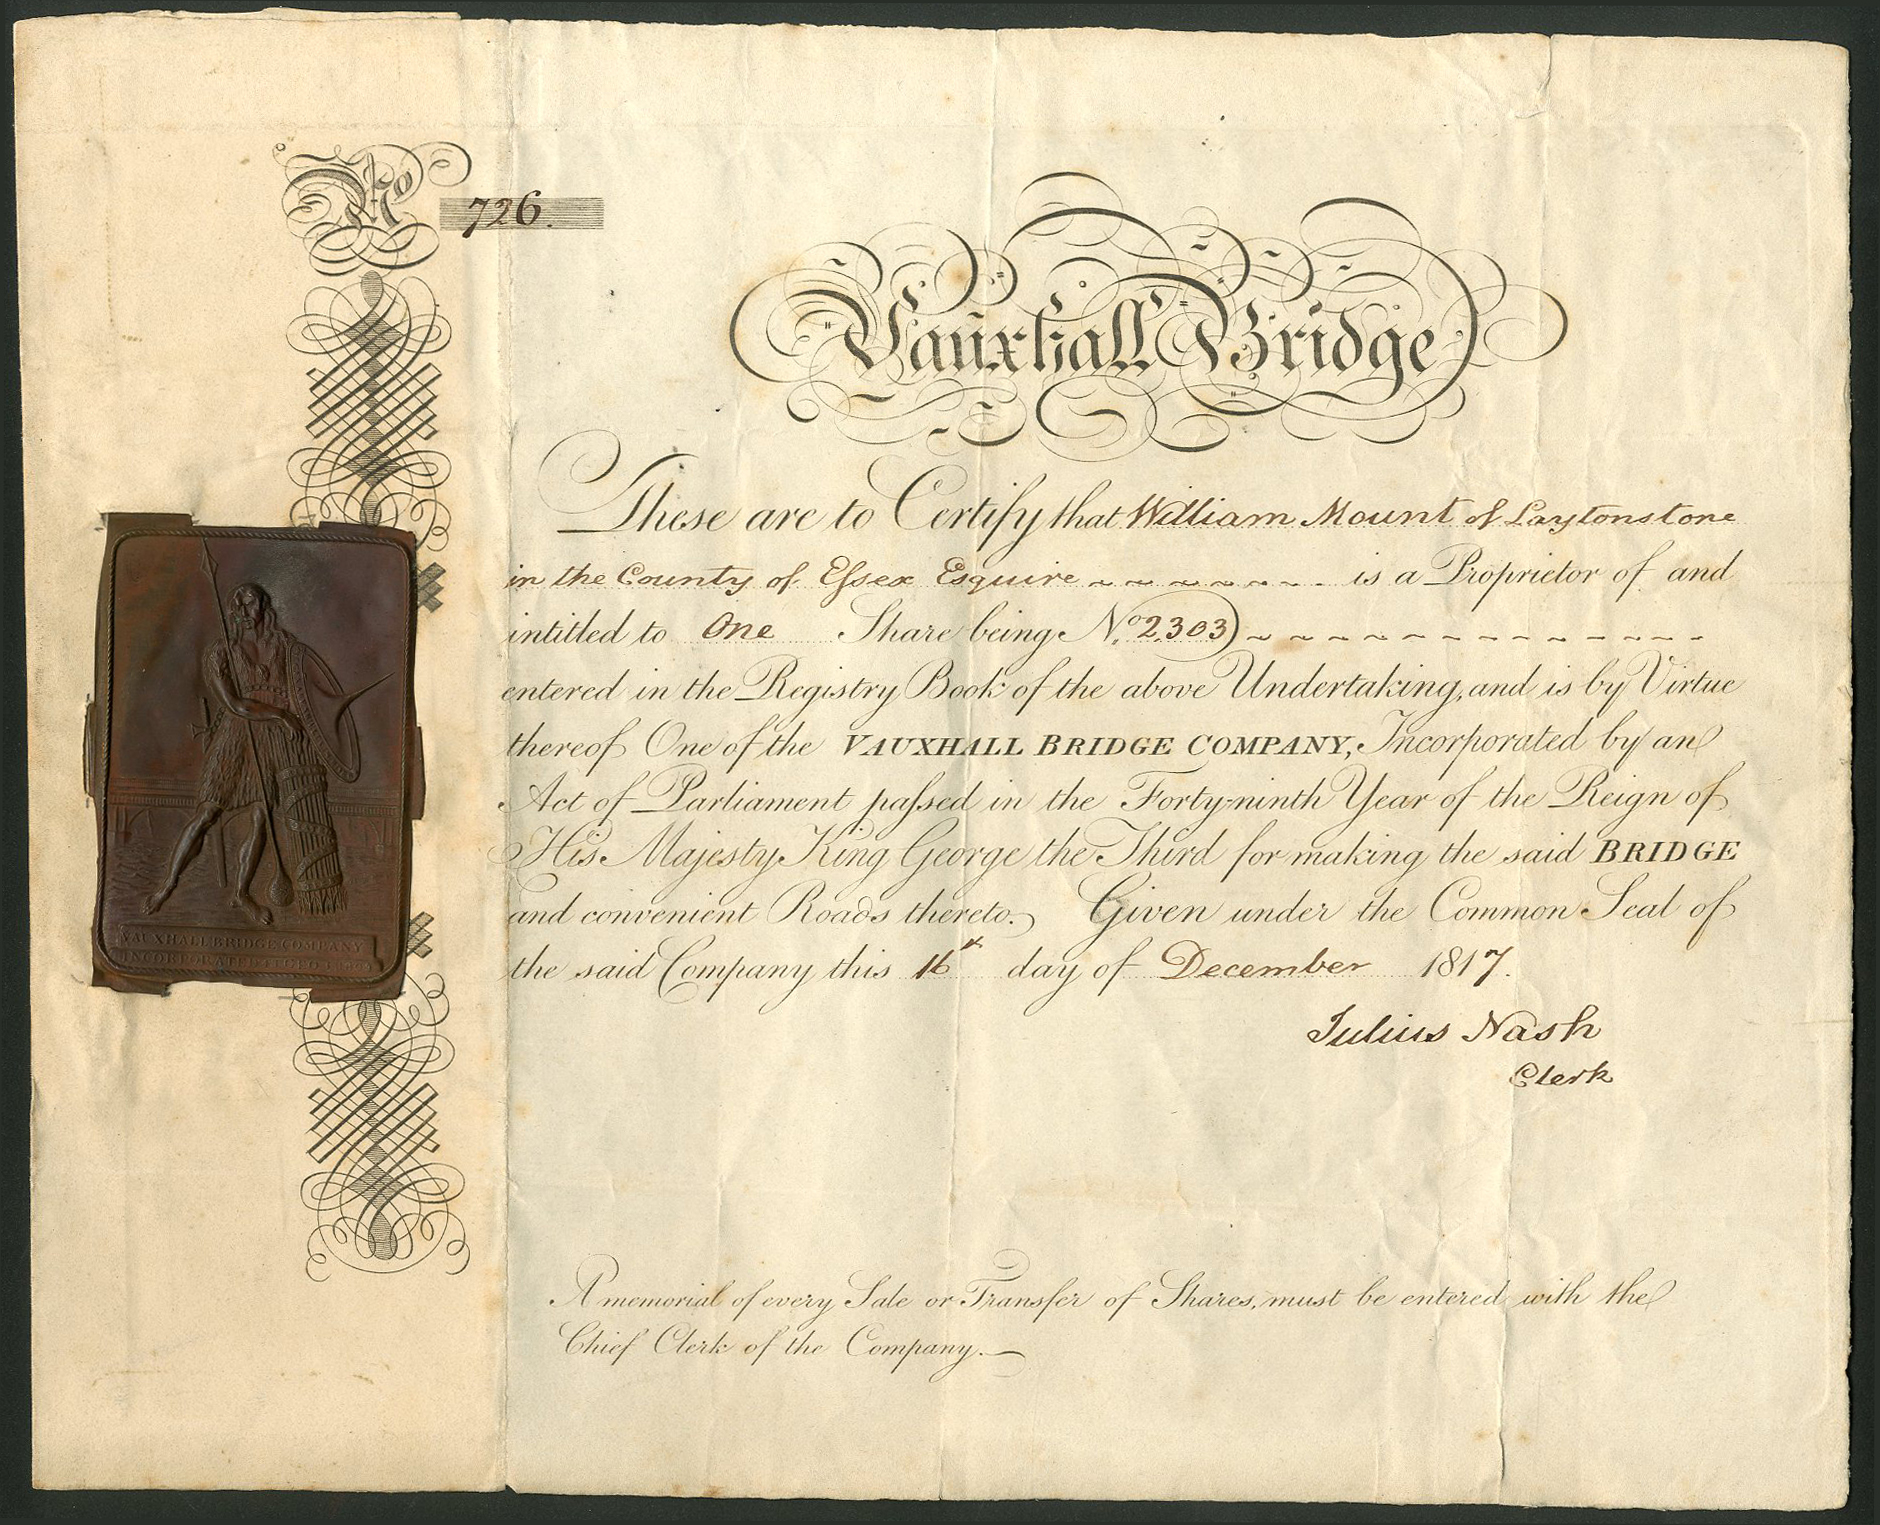 No 726.
Vauxhall Bridge
These are to Certify that William Mount of Laytonstone
in the County of Eſsex Esquire ~ ~ ~ ~ ~ ~ ~ is a Proprietor of and
intitled to One Share being No. 2303) ~ ~ ~ ~ ~ ~ ~ ~ ~ ~ ~
entered in the Registry Book of the above Undertaking, and is by Virtue
thereof One of the VAUXHALL BRIDGE COMPANY, Incorporated by an
Act of Parliament paſsed in the Forty-ninth Year of the Reign of
His Majesty King George the Third for making the said BRIDGE
and convenient Roads thereto. Given under the Common Seal of
the said Company this 16th day of December 1817.
Julius Nash
Clerk
A memorial of every Sale or Transfer of Shares, must be entered with the
Chief Clerk of the Company.—
VAUXHALL BRIDGE COMPANY
INCORPORATED